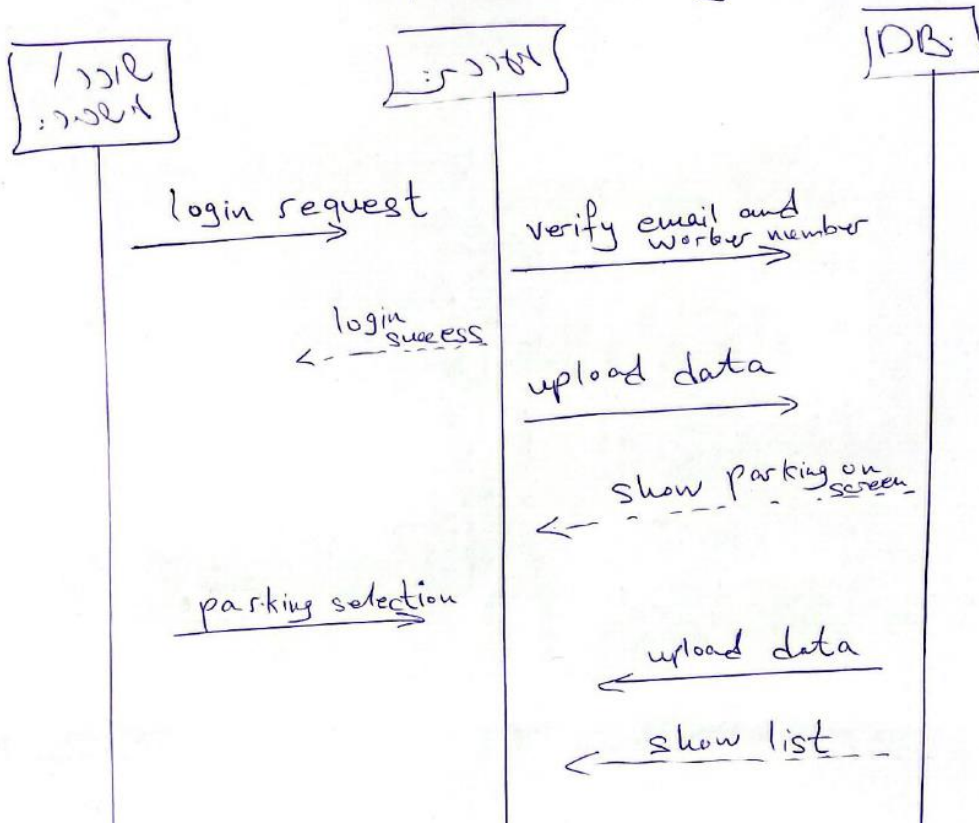 שוכר /
משכיר:
מערכת:
DB:
login request
verify email and
worker number
login
success
upload data
show parking on
screen
parking selection
upload data
show list